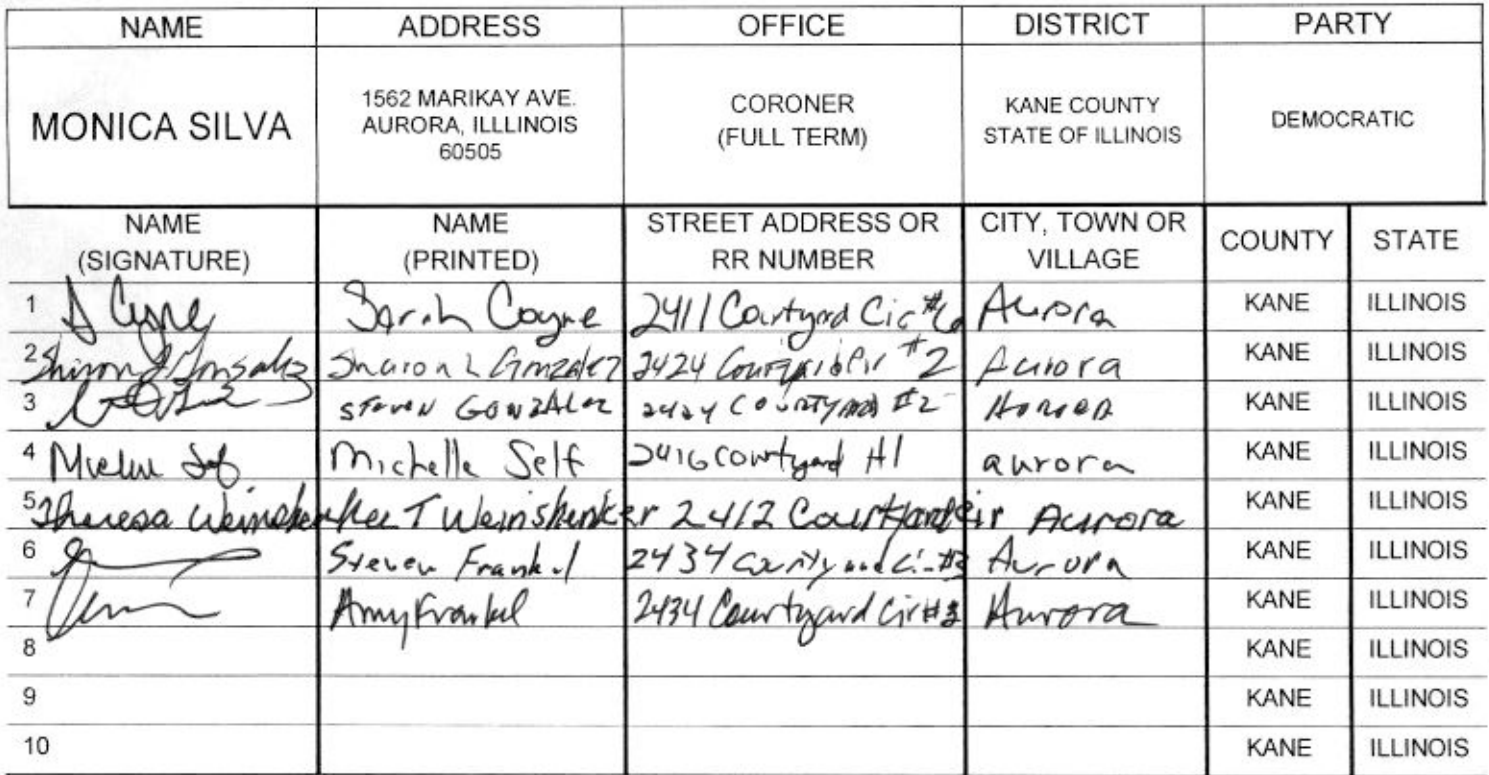 NAME ADDRESS OFFICE DISTRICT PARTY
MONICA SILVA 1562 MARIKAY AVE. AURORA, ILLLINOIS 60505 CORONER (FULL TERM) KANE COUNTY STATE OF ILLINOIS DEMOCRATIC
NAME (SIGNATURE) NAME (PRINTED) STREET ADDRESS OR RR NUMBER CITY, TOWN OR VILLAGE COUNTY STATE
1 Sarah Coyne 2411 Courtyard Cir #6 Aurora KANE ILLINOIS
2 Sharon L Gonzalez 2424 Courtyard Cir #2 Aurora KANE ILLINOIS
3 Steven Gonzalez 2424 Courtyard #2 KANE ILLINOIS
4 Michelle Self 2416 courtyard #1 aurora KANE ILLINOIS
5 Theresa Weinshenker T Weinshenker 2412 Courtyard Cir Aurora KANE ILLINOIS
6 Steven Frankel 2434 Courtyard Cir #3 Aurora KANE ILLINOIS
7 Amy Frankel 2434 Courtyard Cir #3 Aurora KANE ILLINOIS
8 KANE ILLINOIS
9 KANE ILLINOIS
10 KANE ILLINOIS